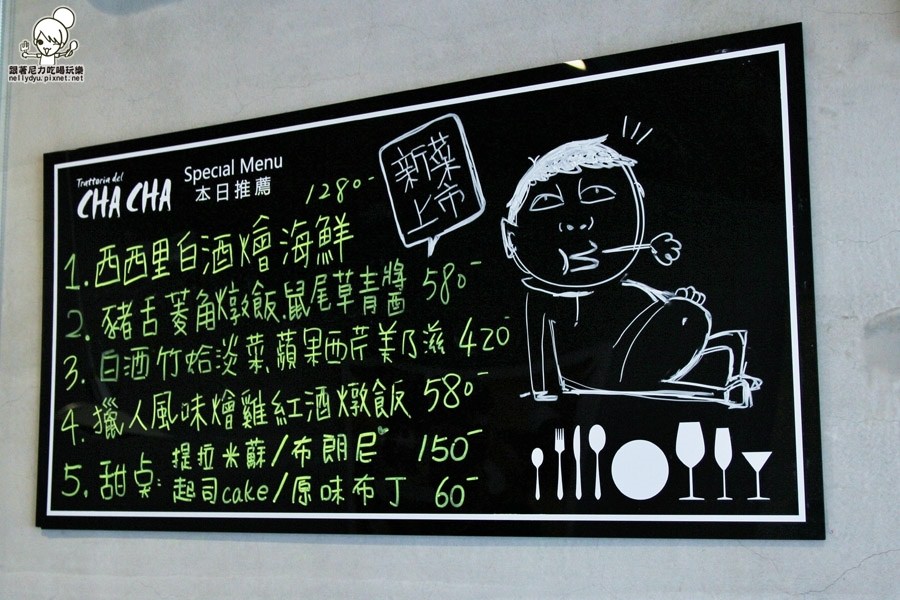 跟著尼力吃喝玩樂
nellydyu.pixnet.net
Trattoria del
CHA CHA
Special Menu
本日推薦
新菜
上市
1280-
1. 西西里白酒燴海鮮
2. 豬舌菱角燉飯.鼠尾草青醬 580-
3. 白酒竹蛤淡菜.蘋果西芹美乃滋 420-
4. 獵人風味燴雞紅酒燉飯 580-
5. 甜点: 提拉米蘇/布朗尼 150-
起司cake/原味布丁 60-